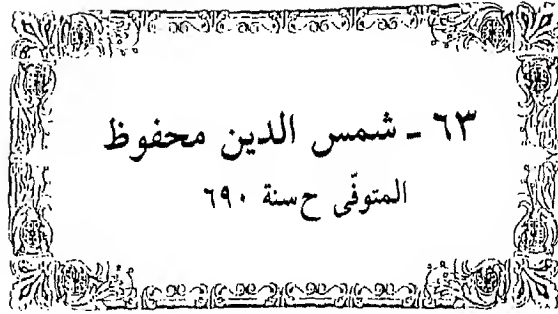 ٦٣ ـ شمس الدين محفوظ
المتوفّى ح سنة ٦٩٠